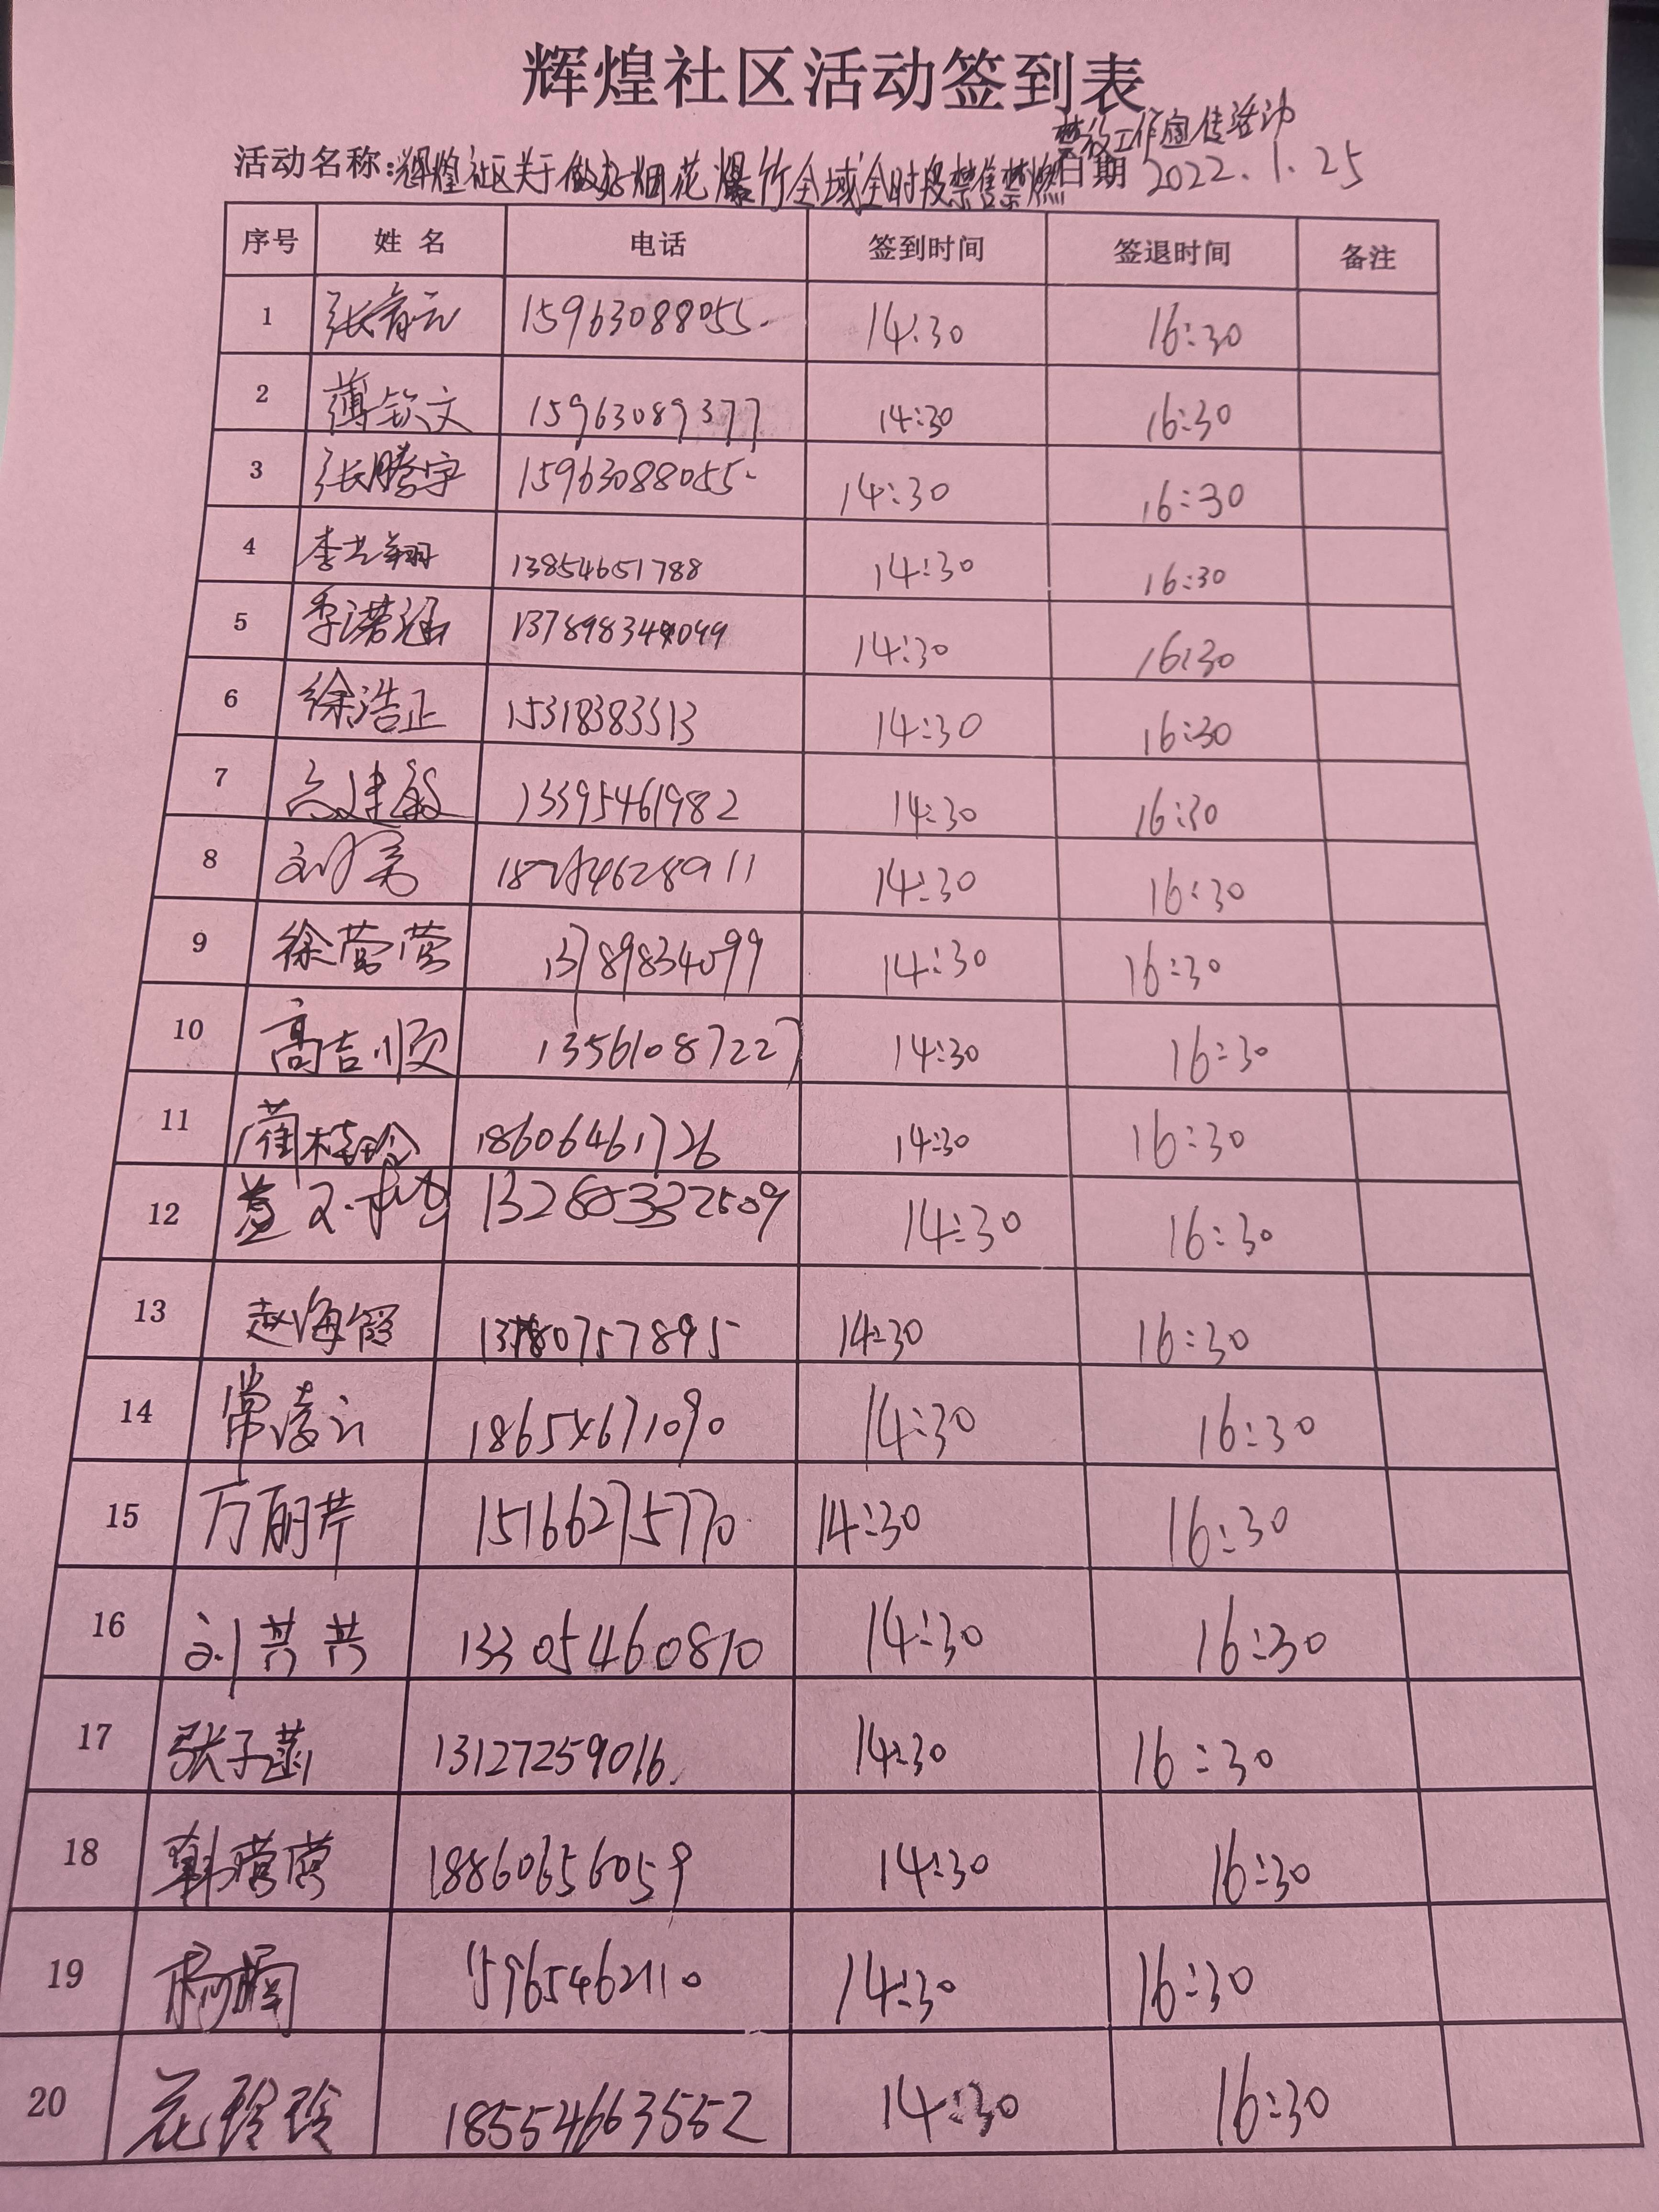 辉煌社区活动签到表
禁放工作宣传活动
活动名称:辉煌社区关于做好烟花爆竹全域全时段禁售禁燃 日期 2022.1.25
序号 姓名 电话 签到时间 签退时间 备注
1 张育元 15963088055 14:30 16:30
2 薄钦文 15963089377 14:30 16:30
3 张腾宇 15963088055 14:30 16:30
4 李艺翔 13854651788 14:30 16:30
5 李诺涵 14:30 16:30
6 徐浩正 15318383513 14:30 16:30
7 建敏 13395461982 14:30 16:30
8 刘 14:30 16:30
9 徐莹莹 13789834099 14:30 16:30
10 高吉顺 13561087227 14:30 16:30
11 蔺桂玲 18606461726 14:30 16:30
12 14:30 16:30
13 赵海霞 14:30 16:30
14 常凌云 18654671090 14:30 16:30
15 万丽芹 15166275770 14:30 16:30
16 刘共共 13305460810 14:30 16:30
17 张子菡 13127259016 14:30 16:30
18 韩莹莹 18860656059 14:30 16:30
19 杨楠 15965462110 14:30 16:30
20 花玲玲 18554663552 14:30 16:30